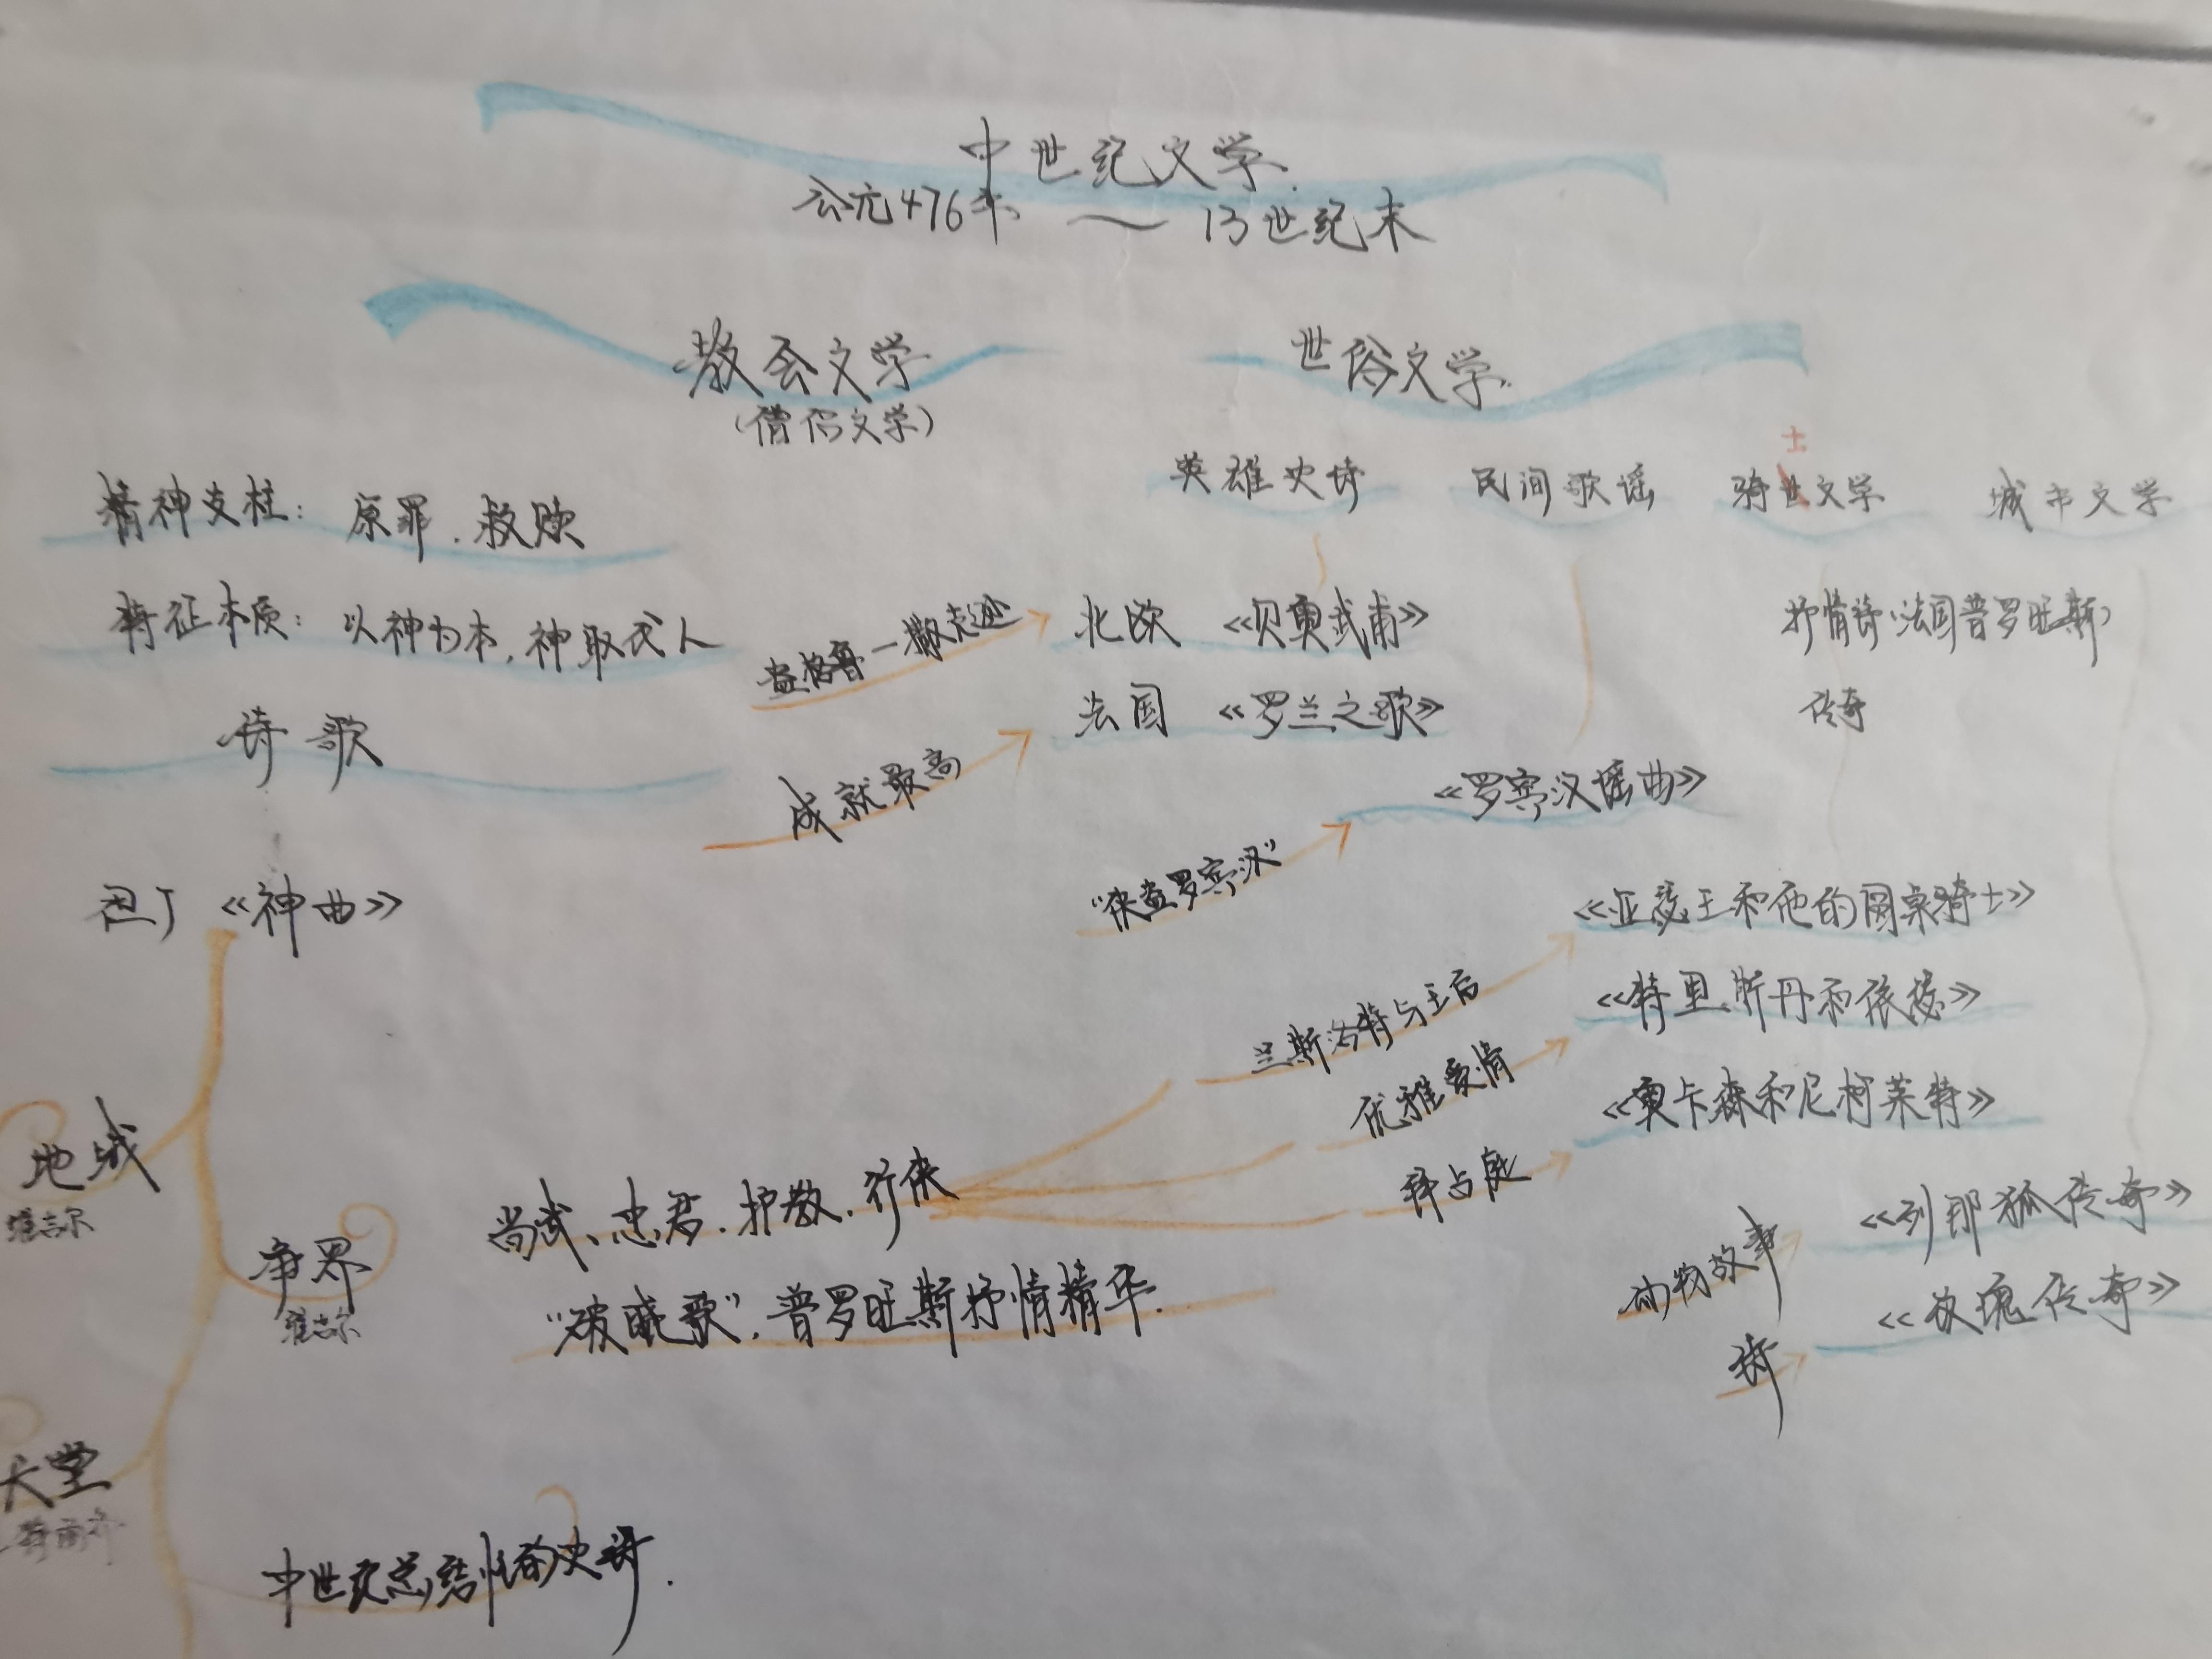 中世纪文学
公元476年 ～ 13世纪末
教会文学
(僧侣文学)
世俗文学
英雄史诗
民间歌谣
骑士文学
城市文学
精神支柱：原罪、救赎
特征本质：以神为本，神取代人
诗歌
但丁《神曲》
地域
维吉尔
净界
维吉尔
天堂
中世纪总结性的史诗.
盎格鲁—撒克逊
北欧 《贝奥武甫》
成就最高
法国 《罗兰之歌》
"侠盗罗宾汉"
《罗宾汉谣曲》
抒情诗（法国普罗旺斯）
传奇
尚武、忠君、护教、行侠
"破晓歌"，普罗旺斯抒情精华.
兰斯洛特与王后
《亚瑟王和他的圆桌骑士》
优雅爱情
《特里斯丹和依瑟》
拜占庭
《奥卡森和尼柯莱特》
动物故事
《列那狐传奇》
诗
《玫瑰传奇》